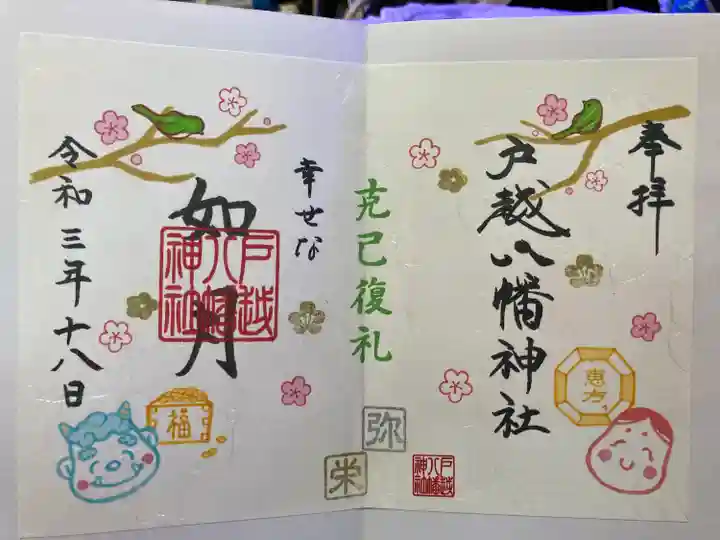 奉拝
戸越八幡神社
恵方
戸越
八幡
神社
克己復礼
弥
栄
幸せな
如月
戸越
八幡
神社
令和三年十八日
福